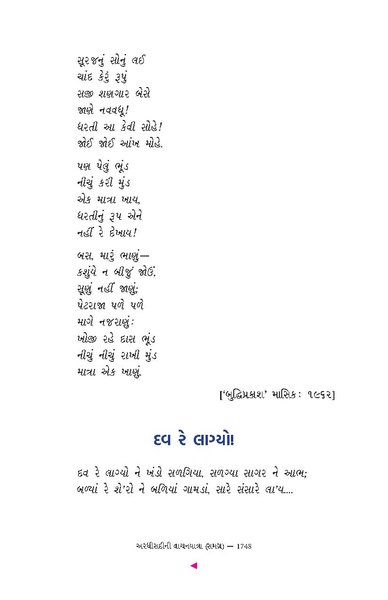 સૂરજનું સોનું લઈ
ચાંદ કેરું રૂપું
સજી શણગાર બેસે
જાણે નવવધૂ!
ધરતી આ કેવી સોહે!
જોઈ જોઈ આંખ મોહે.
પણ પેલું ભૂંડ
નીચું કરી મુંડ
એક માત્રા ખાય,
ધરતીનું રૂપ એને
નહીં રે દેખાય!
બસ, મારું ભાણું—
કશુંયે ન બીજું જોઉં,
સૂણું નહીં જાણું;
પેટરાજા પળે પળે
માગે નજરાણું:
ખોજી રહે દાસ ભૂંડ
નીચું નીચું રાખી મુંડ
માત્રા એક ખાણું.
[‘બુદ્ધિપ્રકાશ’ માસિક: ૧૯૬૨]
દવ રે લાગ્યો!
દવ રે લાગ્યો ને ખંડો સળગિયા, સળગ્યા સાગર ને આભ;
બળ્યાં રે શે'રો ને બળિયાં ગામડાં, સારે સંસારે લા'ય....
અરધીસદીની વાચનયાત્રા (સમગ્ર) — 1745